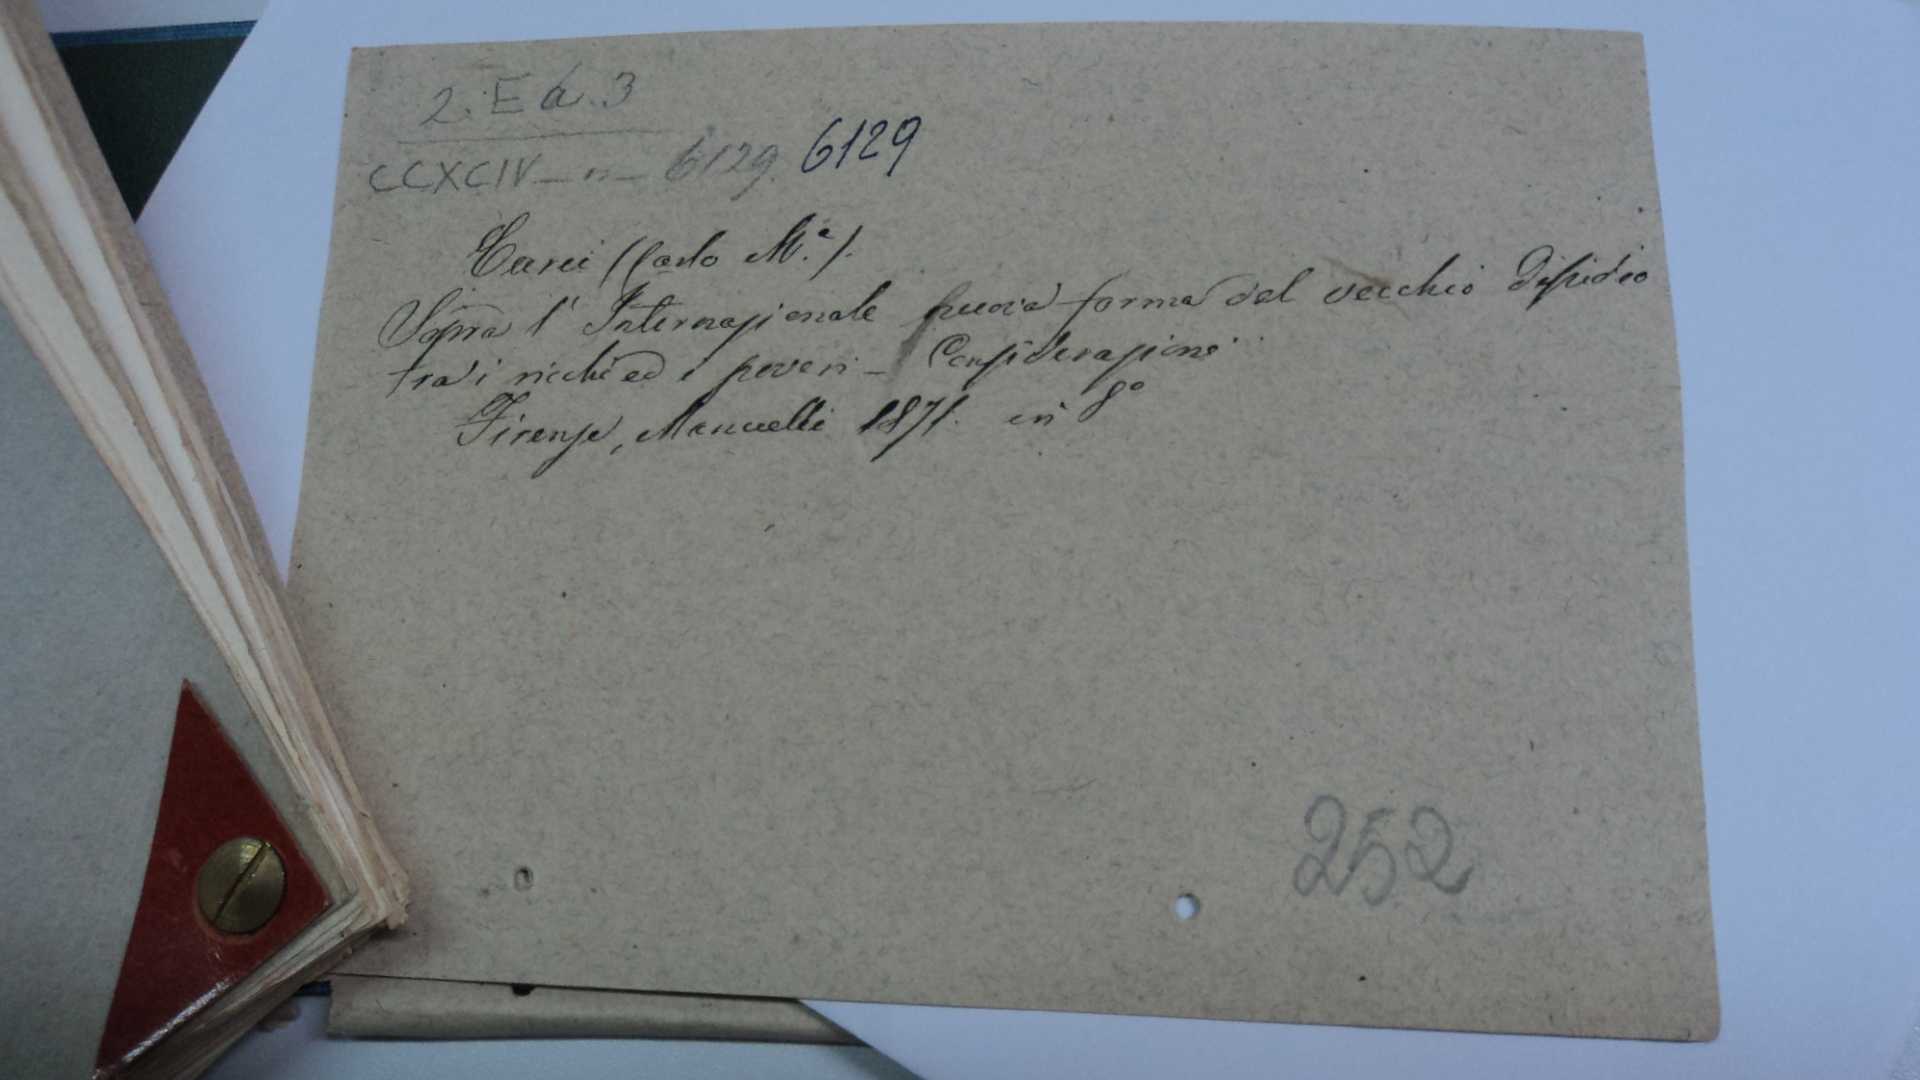 2. E a. 3
CCXCIV - n - 6129. 6129
Curci (Carlo M.ª).
Sopra l'Internazionale nuova forma del vecchio dissidio
tra i ricchi ed i poveri - Considerazioni
Firenze, Manuelli 1871. in 8º
252